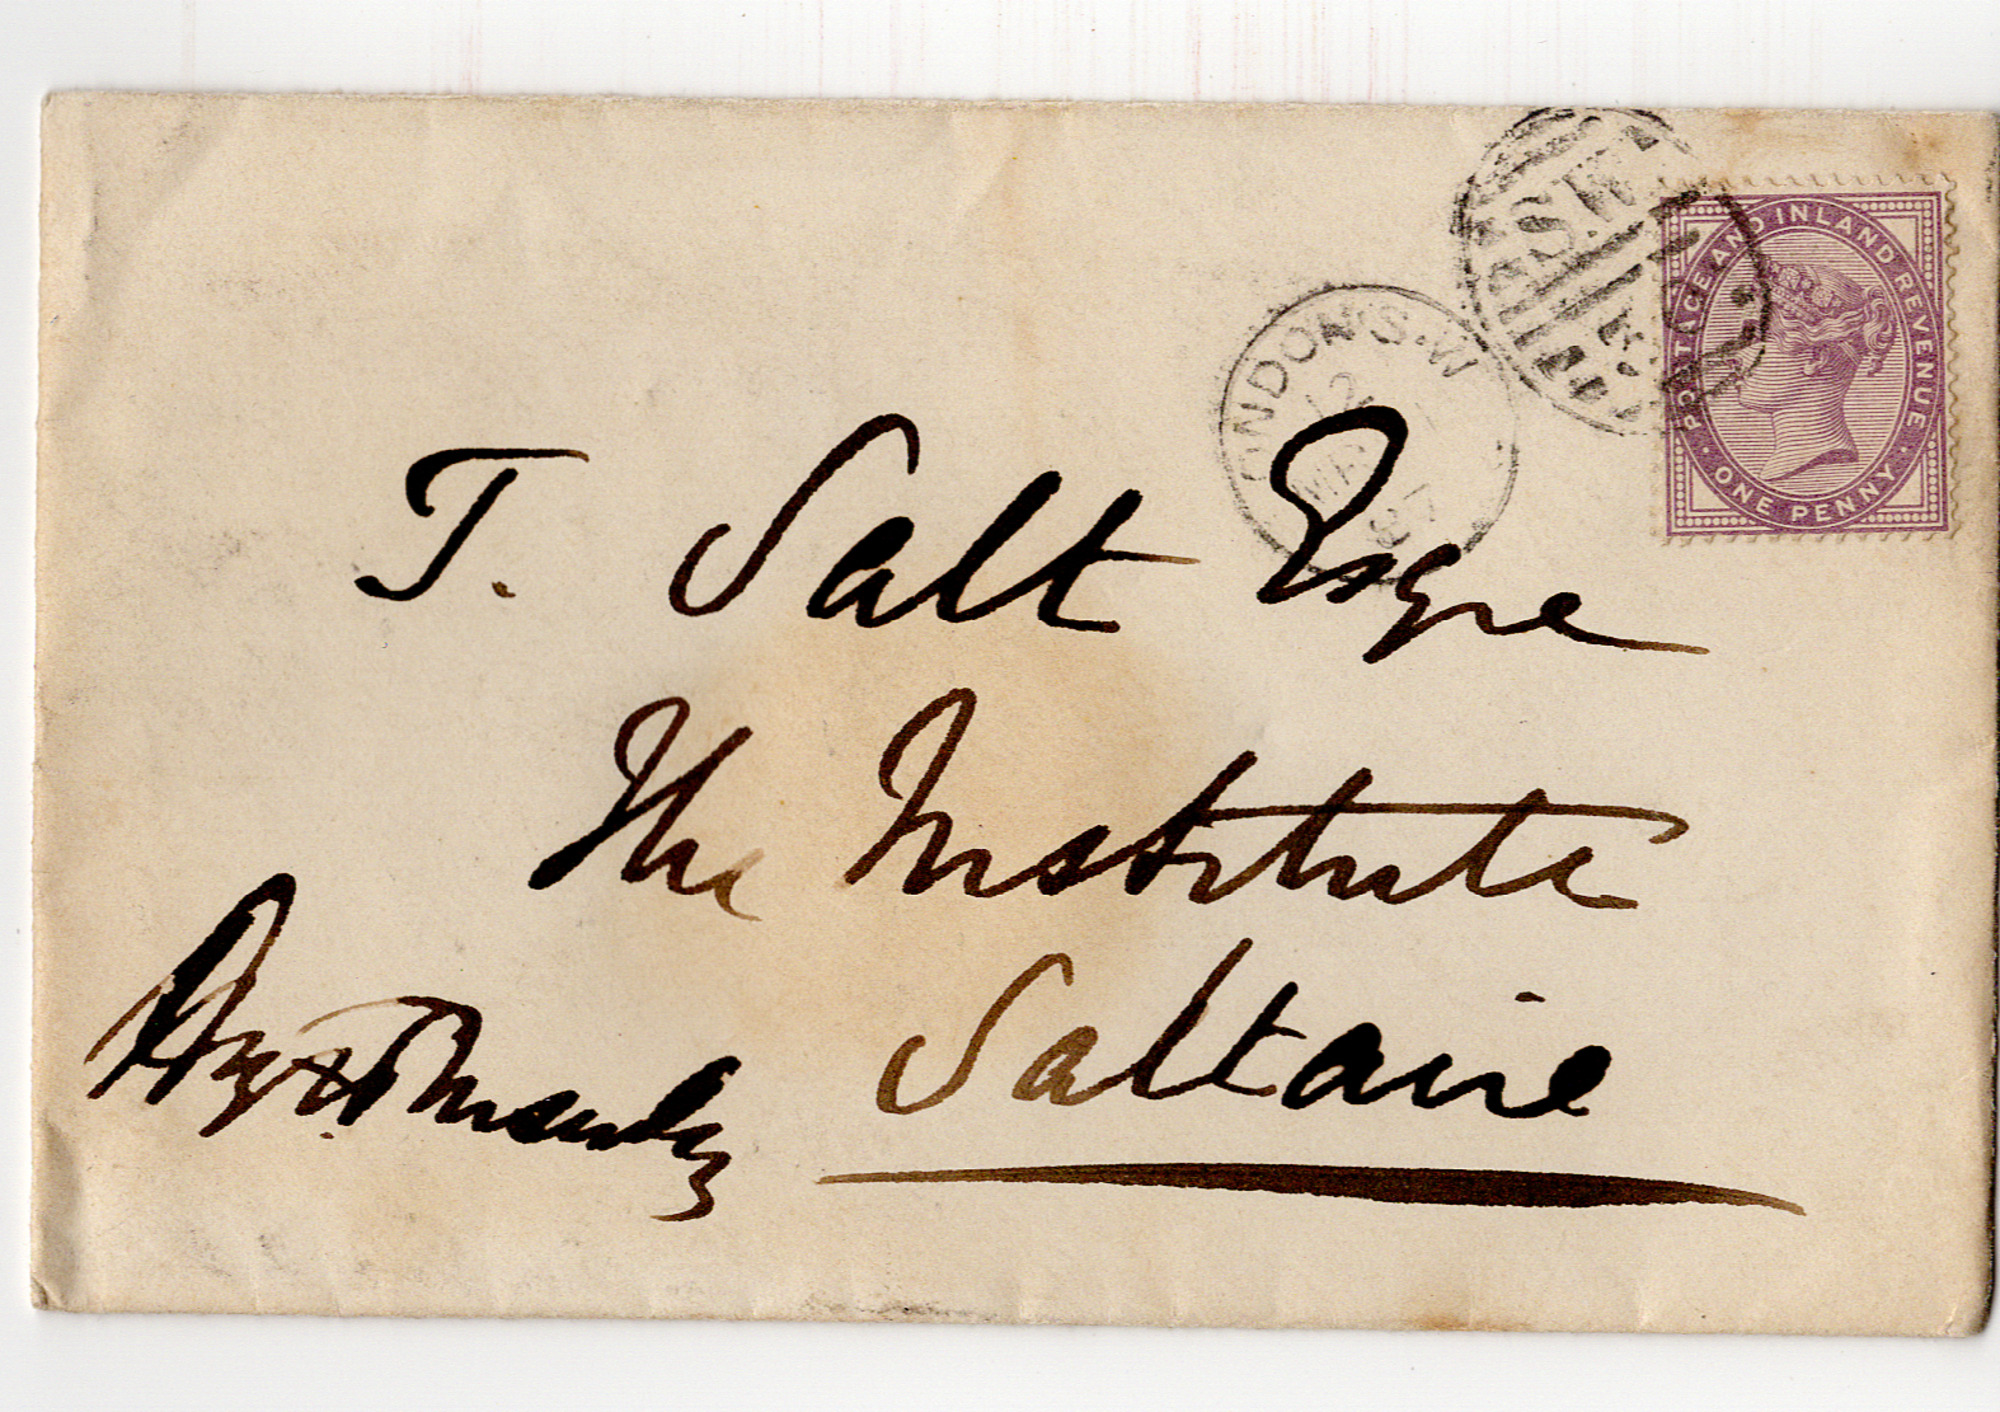 POSTAGE AND INLAND REVENUE
ONE PENNY
S.W
LONDON S.W
12
MAR
87
T. Salt Esqre
The Institute
Saltaire